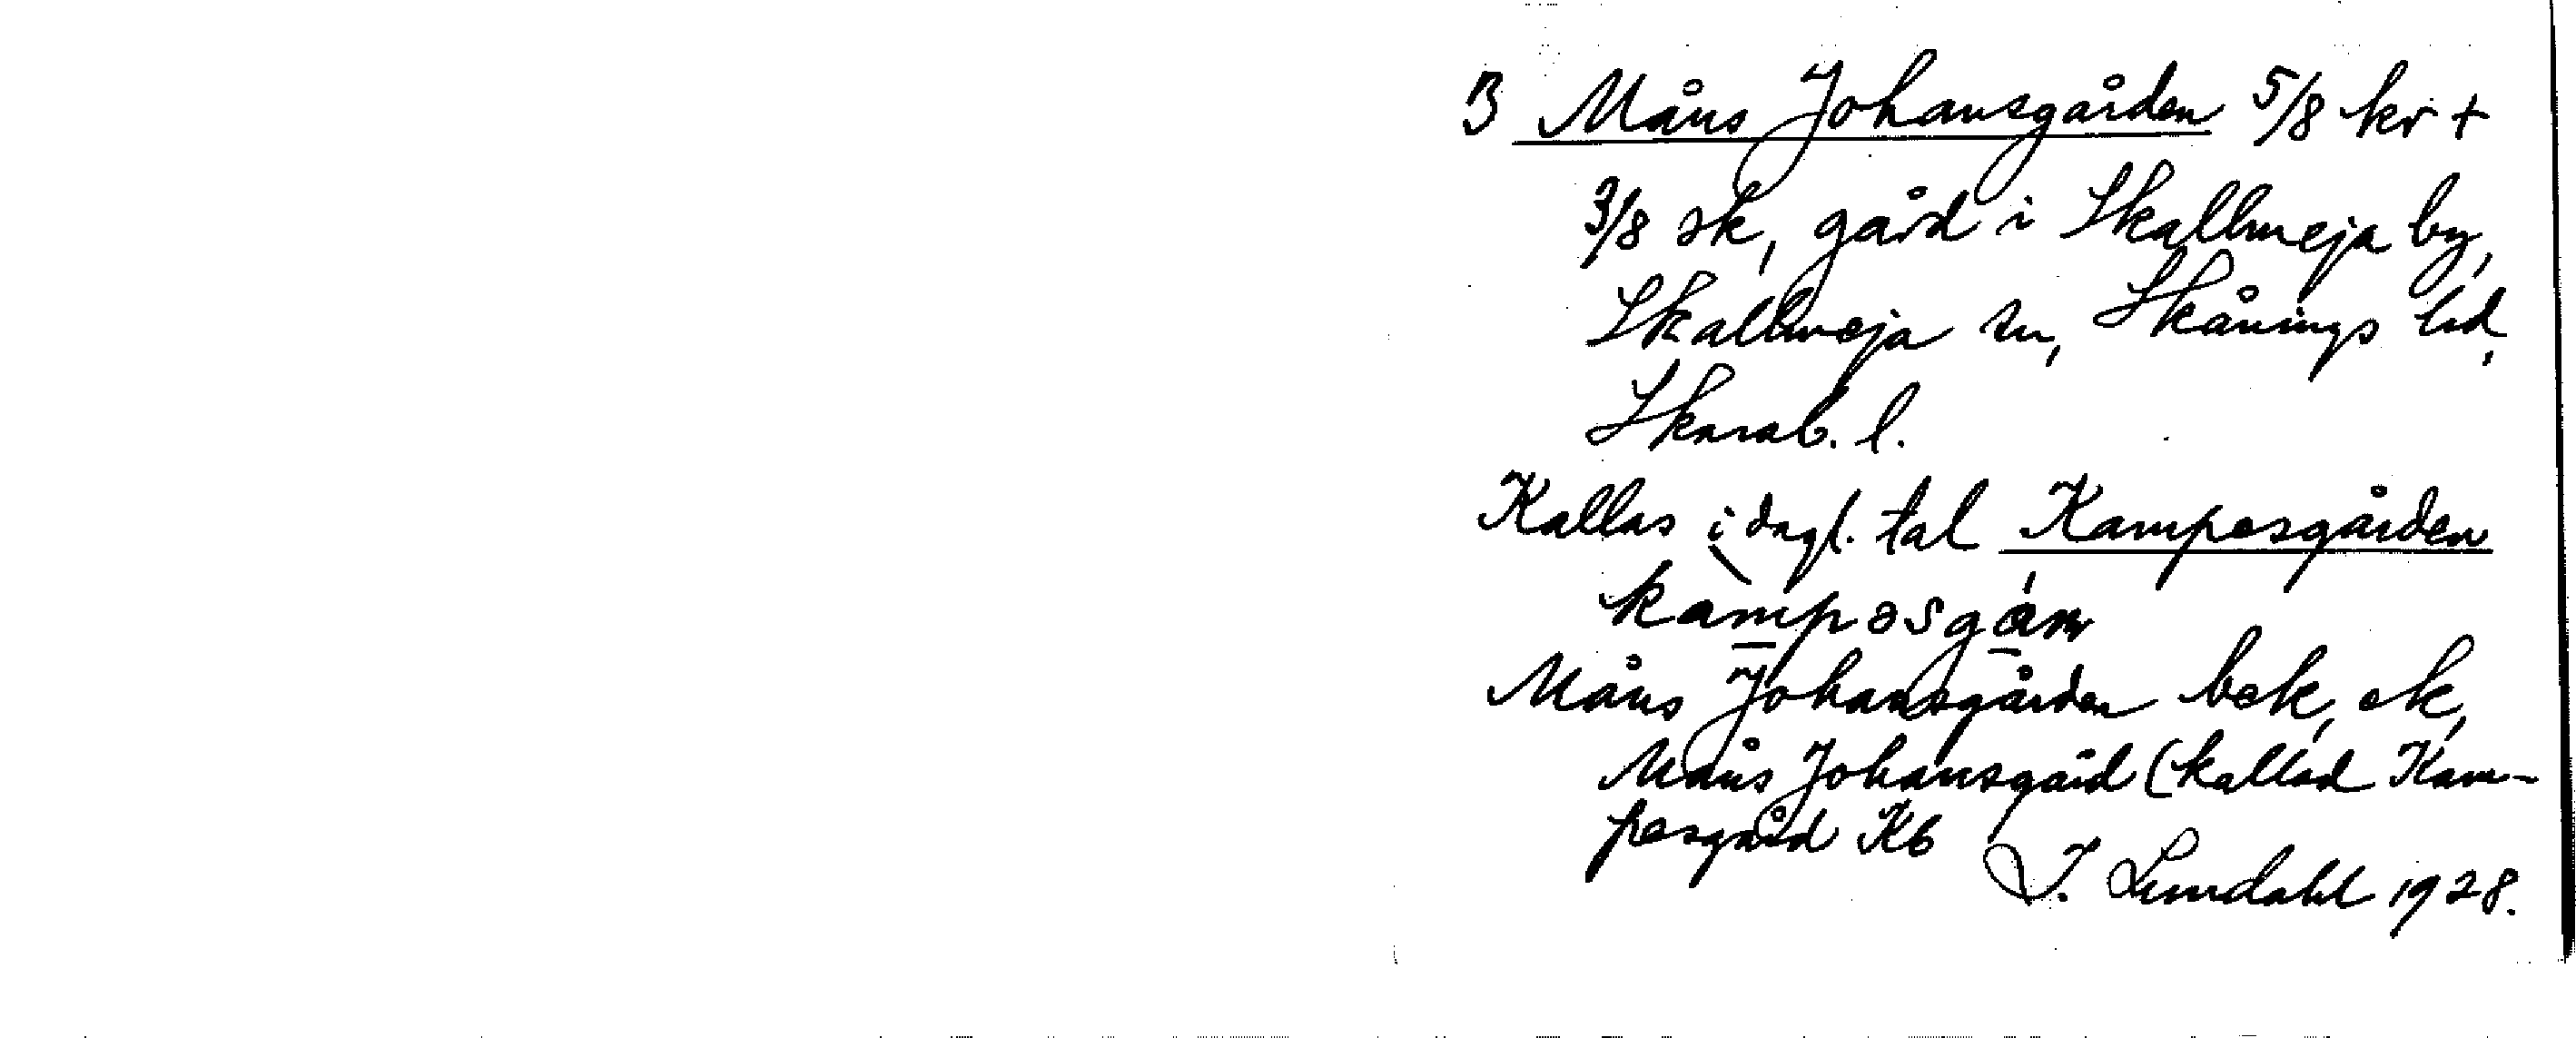 B Måns Johansgården 5/8 kr +
3/8 sk, gård i Skallmeja by,
Skallmeja sn, Skånings hd,
Skarab. l.
Kallas i dagl. tal Kampesgården
Måns Johansgården bek, ek,
Måns Johansgård (kallad Kam-
pesgård Kb
I. Lundahl 1928.